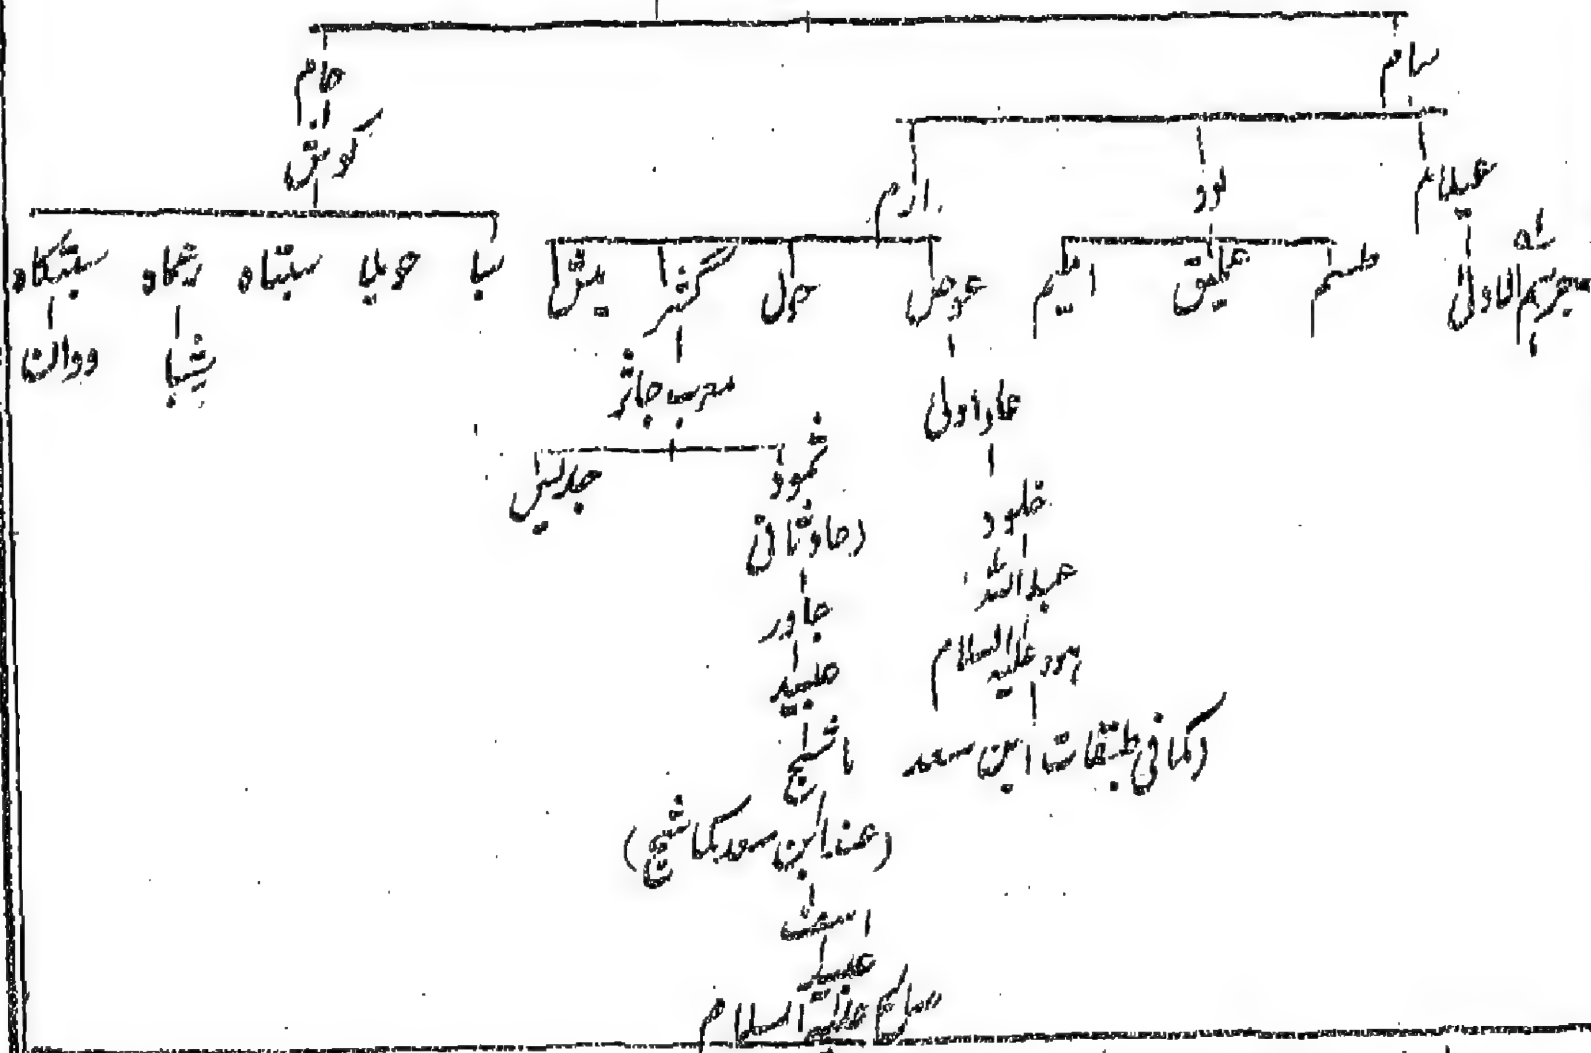 سام حام
کوش
عیلام لود ارم
جرہم الاولیٰ طسم عملیق امیم عوص حول گثر مش سبا حویلہ سبتاہ رعماہ سبتکاہ
شبا ددان
عرب جاثر
عاد اولیٰ
ثمود جدیس
خلود
(عاد ثانی
عبداللہ
جاور
ہود علیہ السلام
عبید
(کما فی طبقات ابن سعد
ماشیح
(عند ابن سعد کماشیح)
اسف
عبید
صالح علیہ السلام